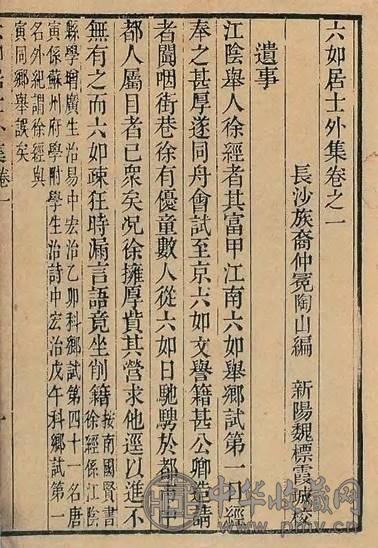 六如居士外集卷之一
長沙族裔仲冕陶山編 新陽魏標霞城校
遺事
江陰舉人徐經者其富甲江南六如舉鄉試第一日經
奉之甚厚遂同舟會試至京六如文譽籍甚公卿造請
者闐咽街巷徐有優童數人從六如日馳騁於都市中
都人屬目者已衆矣况徐擁厚貲其營求他逕以進不
無有之而六如疎狂時漏言語竟坐削籍
按南國賢書
徐經係江陰
縣學增廣生治易中宏治乙卯科鄉試第四十一名唐
寅係蘇州府學附學生治詩中宏治戊午科鄉試第一
名外紀謂徐經與
寅同鄉舉誤矣
居士外集 卷一
一
中华收藏网